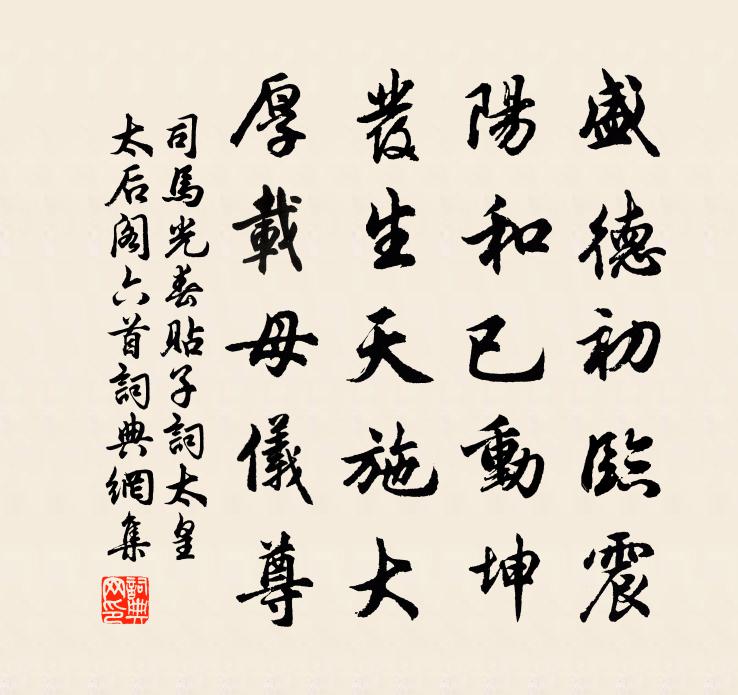 盛德初臨震
陽和已動坤
發生天施大
厚載母儀尊
司馬光春貼子詞太皇
太后閣六首詞典網集
詞典網印